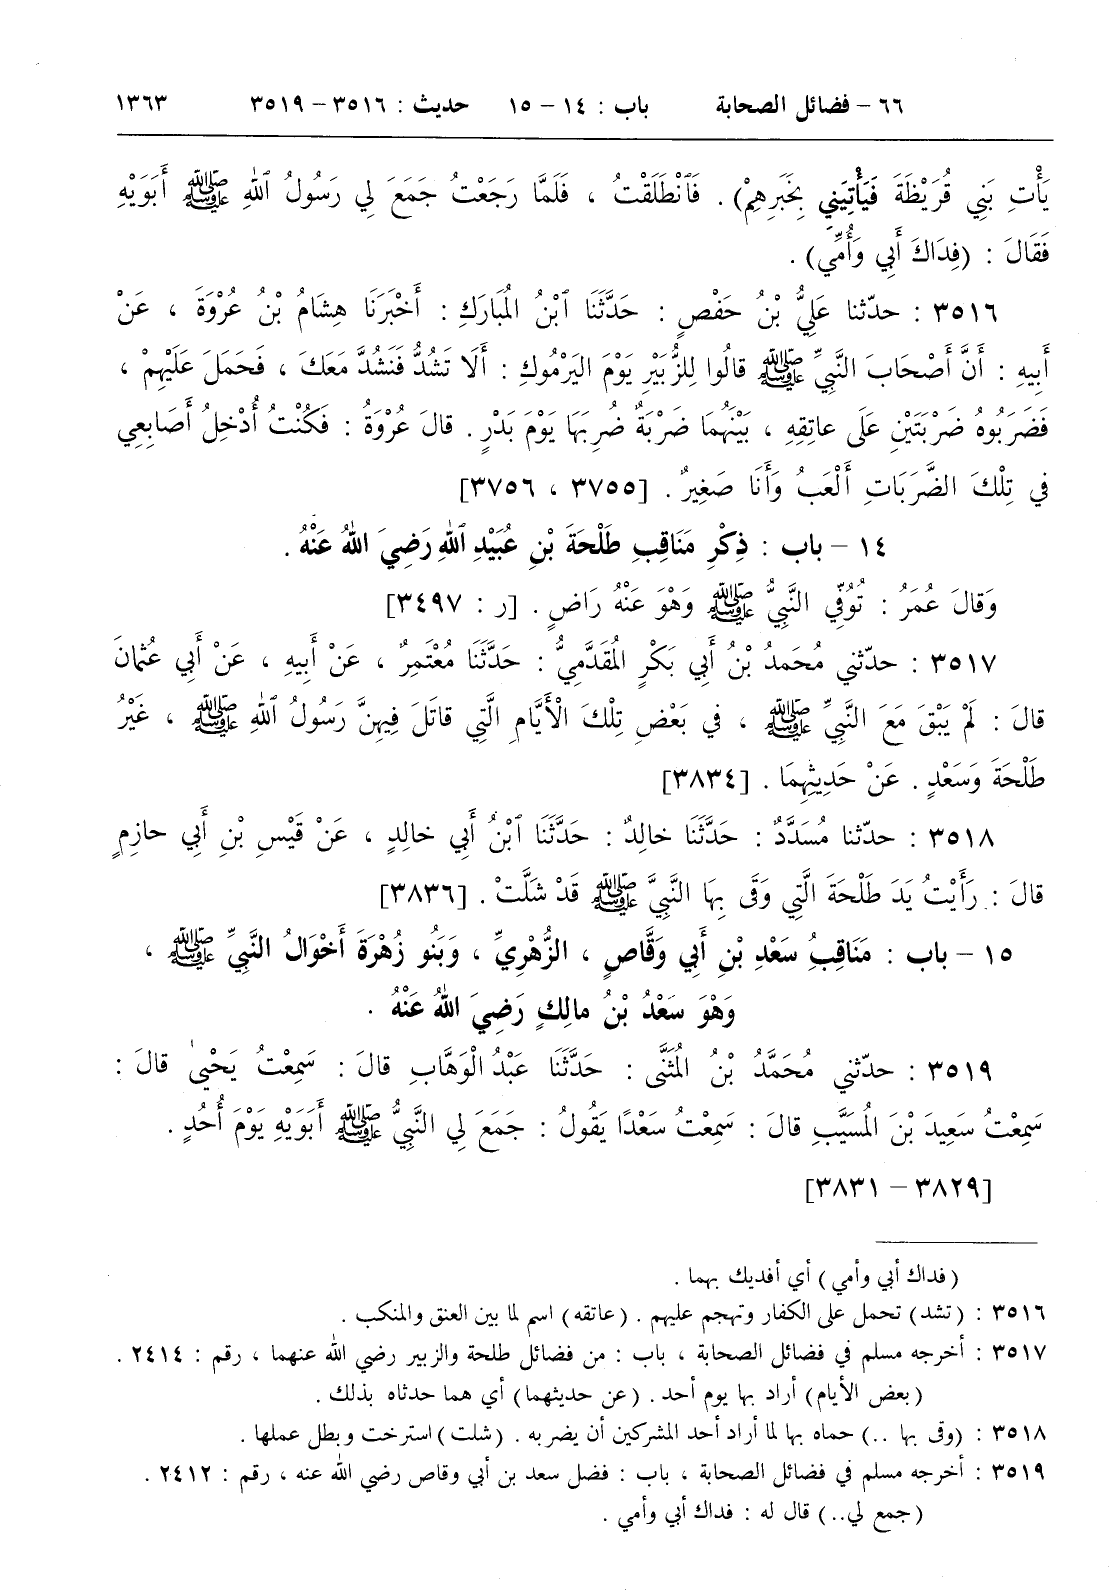 ٦٦ – فضائل الصحابة باب : ١٤ – ١٥ حديث : ٣٥١٦ – ٣٥١٩ ١٣٦٣
يَأْتِ بَنِي قُرَيْظَةَ فَيَأْتِيَنِي بِخَبَرِهِمْ) . فَٱنْطَلَقْتُ ، فَلَمَّا رَجَعْتُ جَمَعَ لِي رَسُولُ ٱللهِ ﷺ أَبَوَيْهِ
فَقَالَ : (فِدَاكَ أَبِي وَأُمِّي) .
٣٥١٦ : حدّثنا عَلِيُّ بْنُ حَفْصٍ : حَدَّثَنَا ٱبْنُ الْمُبَارَكِ : أَخْبَرَنَا هِشَامُ بْنُ عُرْوَةَ ، عَنْ
أَبِيهِ : أَنَّ أَصْحَابَ النَّبِيِّ ﷺ قالُوا لِلزُّبَيْرِ يَوْمَ الْيَرْمُوكِ : أَلَا تَشُدُّ فَنَشُدَّ مَعَكَ ، فَحَمَلَ عَلَيْهِمْ ،
فَضَرَبُوهُ ضَرْبَتَيْنِ عَلَى عاتِقِهِ ، بَيْنَهُمَا ضَرْبَةٌ ضُرِبَهَا يَوْمَ بَدْرٍ . قالَ عُرْوَةُ : فَكُنْتُ أُدْخِلُ أَصَابِعِي
في تِلْكَ الضَّرَبَاتِ أَلْعَبُ وَأَنَا صَغِيرٌ . [٣٧٥٥ ، ٣٧٥٦]
١٤ – باب : ذِكْرِ مَنَاقِبِ طَلْحَةَ بْنِ عُبَيْدِ ٱللهِ رَضِيَ ٱللهُ عَنْهُ .
وَقالَ عُمَرُ : تُوُفِّيَ النَّبِيُّ ﷺ وَهْوَ عَنْهُ رَاضٍ . [ر : ٣٤٩٧]
٣٥١٧ : حدّثني مُحَمَّدُ بْنُ أَبِي بَكْرٍ الْمُقَدَّمِيُّ : حَدَّثَنَا مُعْتَمِرٌ ، عَنْ أَبِيهِ ، عَنْ أَبِي عُثْمانَ
قالَ : لَمْ يَبْقَ مَعَ النَّبِيِّ ﷺ ، في بَعْضِ تِلْكَ الْأَيَّامِ الَّتِي قاتَلَ فِيهِنَّ رَسُولُ ٱللهِ ﷺ ، غَيْرُ
طَلْحَةَ وَسَعْدٍ . عَنْ حَدِيثِهِمَا . [٣٨٣٤]
٣٥١٨ : حدّثنا مُسَدَّدٌ : حَدَّثَنَا خالِدٌ : حَدَّثَنَا ٱبْنُ أَبِي خالِدٍ ، عَنْ قَيْسِ بْنِ أَبِي حازِمٍ
قالَ : رَأَيْتُ يَدَ طَلْحَةَ الَّتِي وَقَى بِهَا النَّبِيَّ ﷺ قَدْ شَلَّتْ . [٣٨٣٦]
١٥ – باب : مَنَاقِبُ سَعْدِ بْنِ أَبِي وَقَّاصٍ ، الزُّهْرِيِّ ، وَبَنُو زُهْرَةَ أَخْوَالُ النَّبِيِّ ﷺ ،
وَهْوَ سَعْدُ بْنُ مالِكٍ رَضِيَ ٱللهُ عَنْهُ .
٣٥١٩ : حدّثني مُحَمَّدُ بْنُ الْمُثَنَّى : حَدَّثَنَا عَبْدُ الْوَهَّابِ قالَ : سَمِعْتُ يَحْيٰى قالَ :
سَمِعْتُ سَعِيدَ بْنَ الْمُسَيَّبِ قالَ : سَمِعْتُ سَعْدًا يَقُولُ : جَمَعَ لِي النَّبِيُّ ﷺ أَبَوَيْهِ يَوْمَ أُحُدٍ .
[٣٨٢٩ – ٣٨٣١]
(فداك أبي وأمي) أي أفديك بهما .
٣٥١٦ : (تشد) تحمل على الكفار وتهجم عليهم . (عاتقه) اسم لما بين العنق والمنكب .
٣٥١٧ : أخرجه مسلم في فضائل الصحابة ، باب : من فضائل طلحة والزبير رضي الله عنهما ، رقم : ٢٤١٤ .
(بعض الأيام) أراد بها يوم أحد . (عن حديثهما) أي هما حدثاه بذلك .
٣٥١٨ : (وقى بها ..) حماه بها لما أراد أحد المشركين أن يضربه . (شلت) استرخت وبطل عملها .
٣٥١٩ : أخرجه مسلم في فضائل الصحابة ، باب : فضل سعد بن أبي وقاص رضي الله عنه ، رقم : ٢٤١٢ .
(جمع لي..) قال له : فداك أبي وأمي .